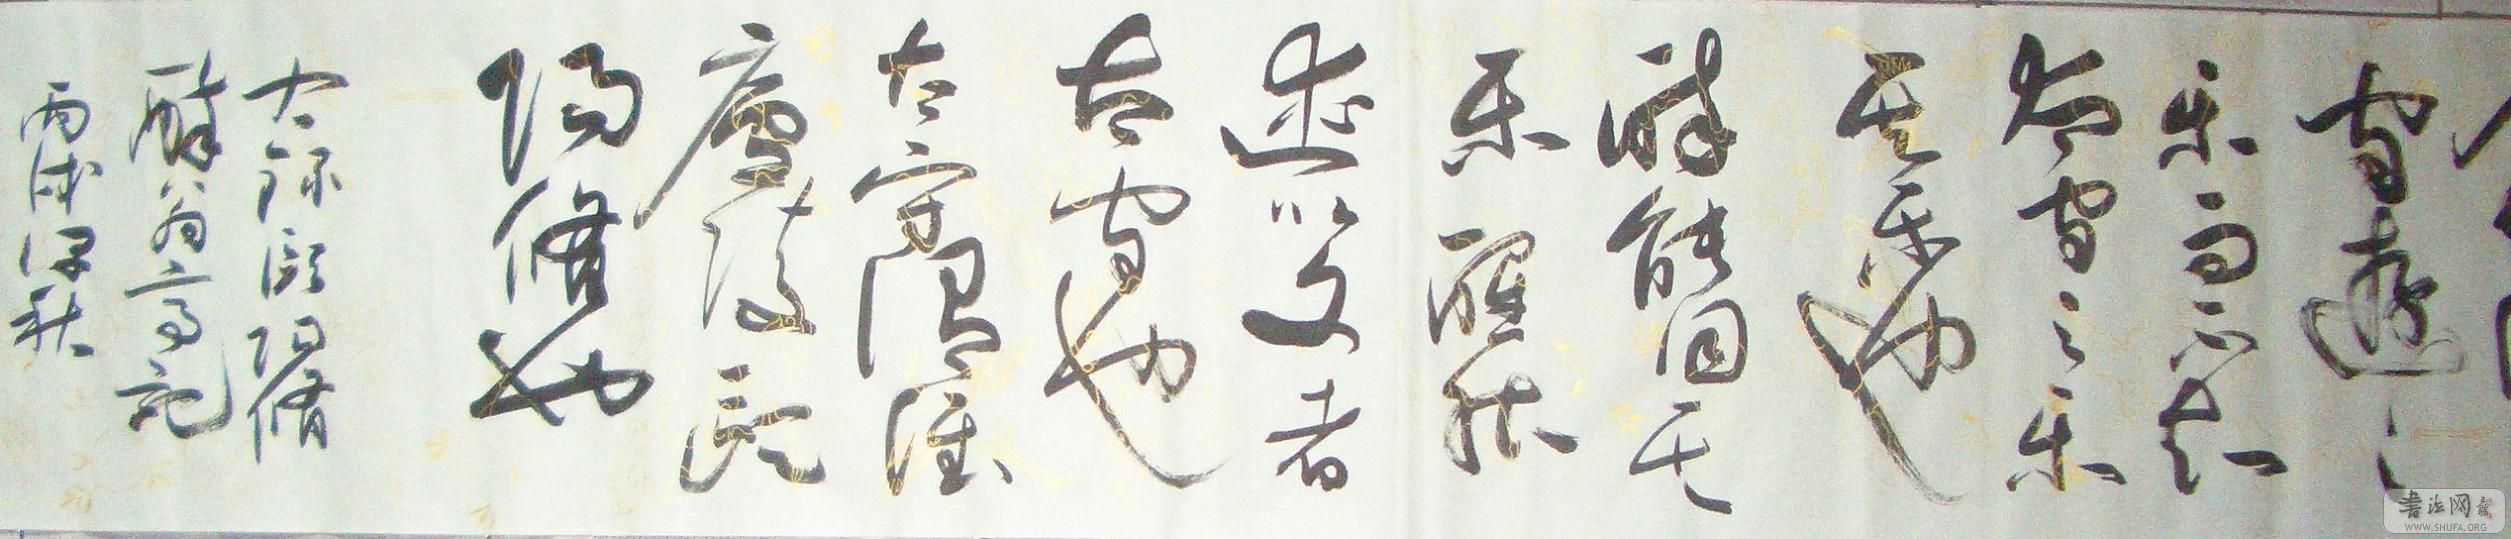 守遊
樂而不知
太守之樂
其樂也
醉能同其
樂醒能
述以文者
太守也
太守謂誰
廬陵歐
陽修也
右録歐陽修
醉翁亭記
丙戌深秋
书法网
WWW.SHUFA.ORG